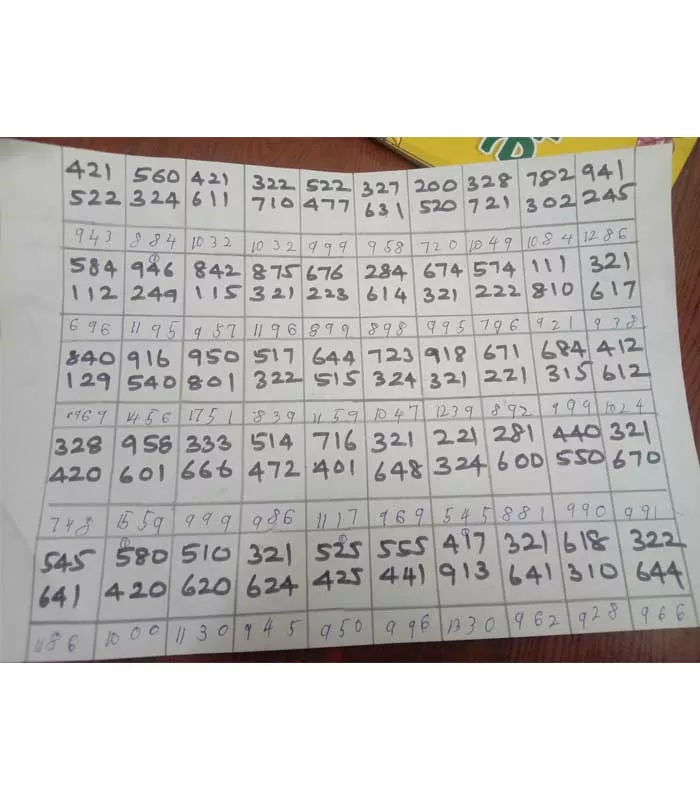 421 560 421 322 522 327 200 328 782 941
522 324 611 710 477 631 520 721 302 245
943 884 1032 1032 999 958 720 1049 1084 1286
584 946 842 875 676 284 674 574 111 321
112 249 115 321 223 614 321 222 810 617
696 1195 957 1196 899 898 995 796 921 938
840 916 950 517 644 723 918 671 684 412
129 540 801 322 515 324 321 221 315 612
969 1456 1751 839 1159 1047 1239 892 999 1024
328 958 333 514 716 321 221 281 440 321
420 601 666 472 401 648 324 600 550 670
748 1559 999 986 1117 969 545 881 990 991
545 580 510 321 525 555 417 321 618 322
641 420 620 624 425 441 913 641 310 644
1186 1000 1130 945 950 996 1330 962 928 966